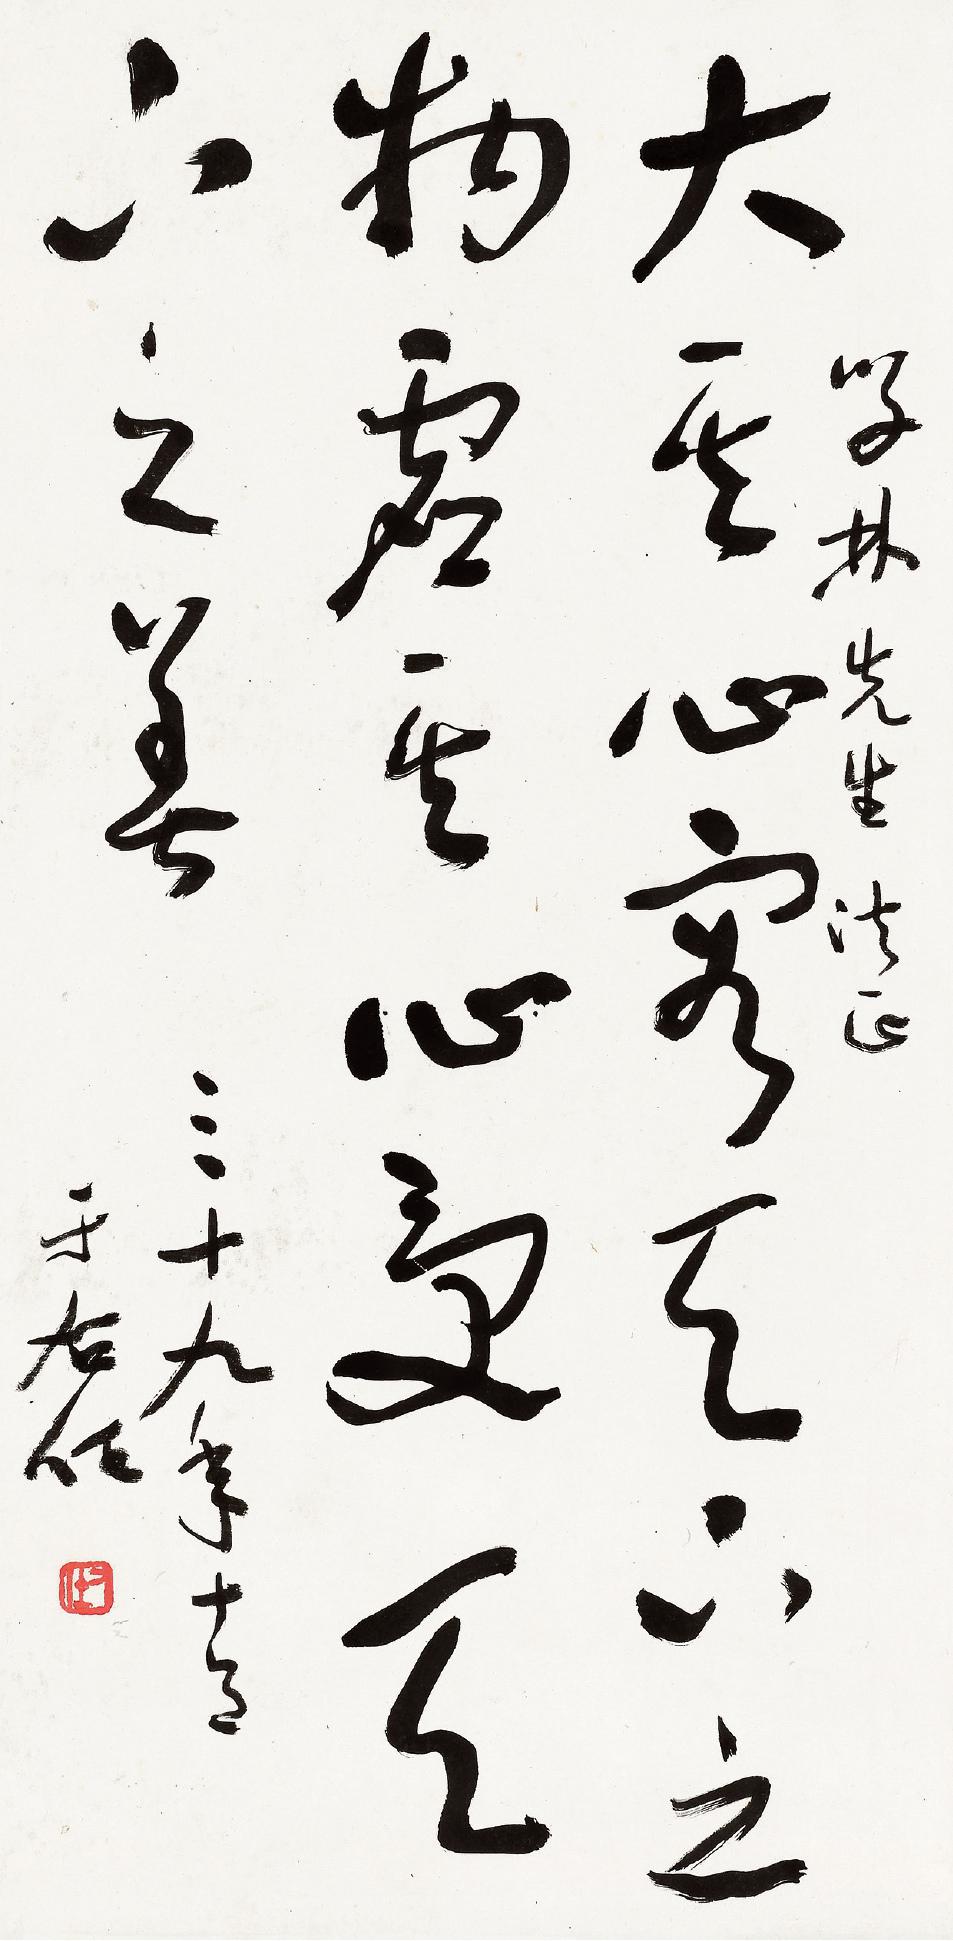 學林先生法正
大其心容天下之
物虛其心受天
下之善
三十九年十二月
于右任